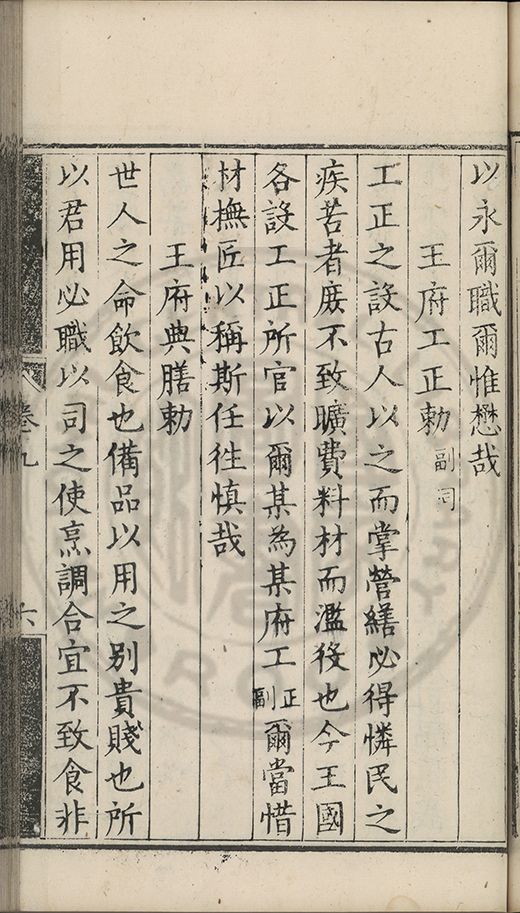 以永爾職爾惟懋哉
王府工正勅副同
工正之設古人以之而掌營繕必得憐民之
疾苦者庻不致曠費料材而濫役也今王國
各設工正所官以爾某為某府工正副爾當惜
材撫匠以稱斯任徃慎哉
王府典膳勅
世人之命飲食也備品以用之别貴賤也所
以君用必職以司之使烹調合宜不致食非
卷九
六